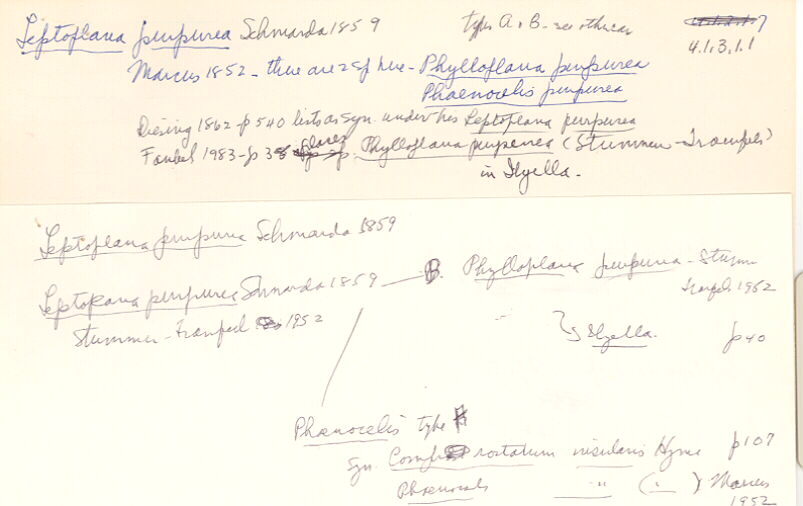 Leptoplana purpurea Schmarda 1859
type A & B - see other card
4.1.3.1.1
Marcus 1852 - there are 2 sp here - Phylloplana purpurea
Phaenocelis purpurea
Diesing 1862 - p 540 lists as syn. under his Leptoplana purpurea
Faubel 1983 - p 38 places Phylloplana purpurea (Stummer-Traunfels)
in Ilyella.
Leptoplana purpurea Schmarda 1859
Leptoplana purpurea Schmarda 1859 — B. Phylloplana purpurea - Stumm
Traunf. 1952
Stummer-Traunfel 1952
Ilyella. p 40
Phaenocelis type A
syn. Comprostatum insularis Hyman p 107
Phaenocelis " ( " ) Marcus
1952